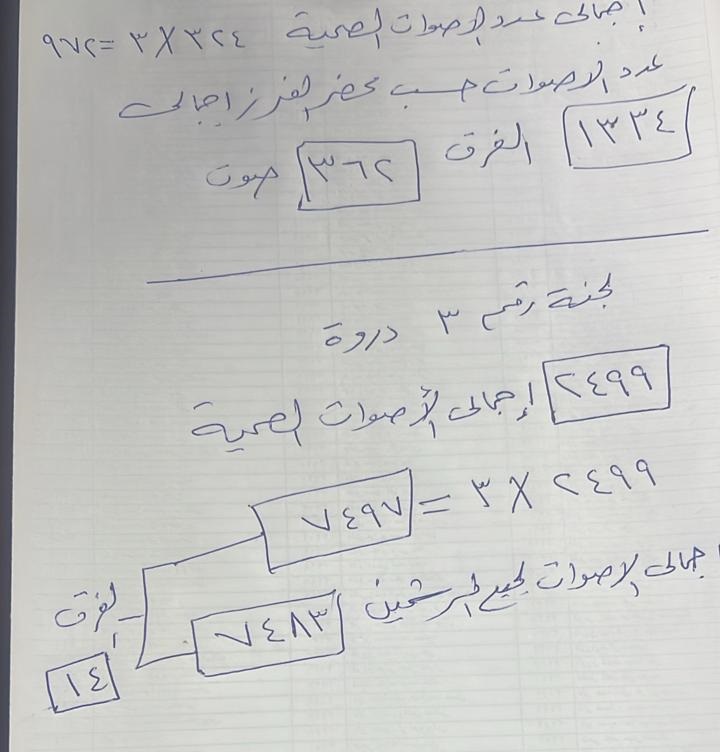 إجمالى عدد الاصوات الصحية ٣٢٤ X ٣ = ٩٧٢
عدد الاصوات حسب محضر الفرز إجمالى
١٣٣٤ الفرق ٣٦٢ صوت
لجنة رقم ٣ دروة
٢٤٩٩ إجمالى الأصوات الصحية
٢٤٩٩ X ٣ = ٧٤٩٧
اجمالى الاصوات لجميع المرشحين ٧٤٨٣
الفرق
١٤